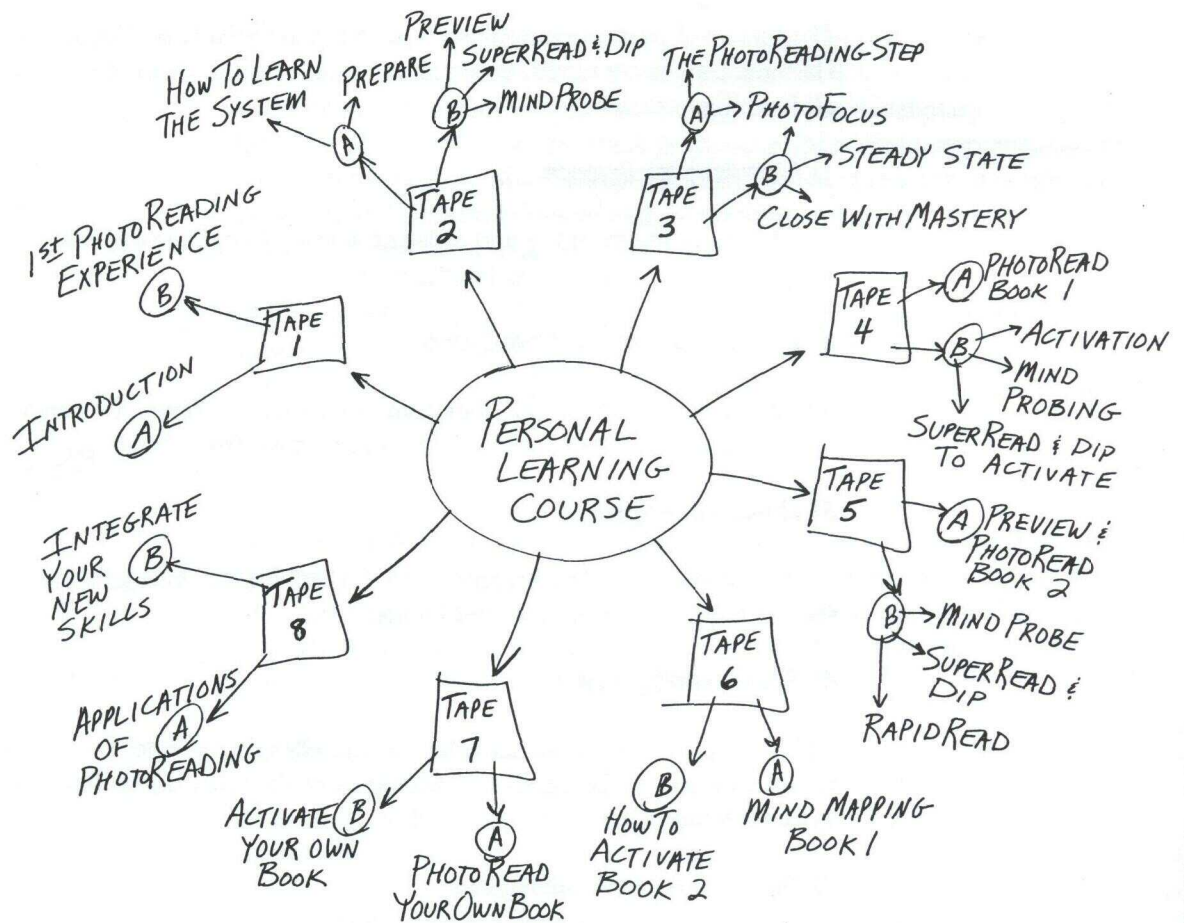 PERSONAL
LEARNING
COURSE
TAPE
1
A
INTRODUCTION
B
1st PHOTOREADING
EXPERIENCE
TAPE
2
A
HOW TO LEARN
THE SYSTEM
PREPARE
B
PREVIEW
SUPERREAD & DIP
MIND PROBE
TAPE
3
A
THE PHOTOREADING STEP
B
PHOTOFOCUS
STEADY STATE
CLOSE WITH MASTERY
TAPE
4
A
PHOTOREAD
BOOK 1
B
ACTIVATION
MIND
PROBING
SUPERREAD & DIP
TO ACTIVATE
TAPE
5
A
PREVIEW &
PHOTOREAD
BOOK 2
B
MIND PROBE
SUPERREAD &
DIP
RAPID READ
TAPE
6
A
MIND MAPPING
BOOK 1
B
HOW TO
ACTIVATE
BOOK 2
TAPE
7
A
PHOTOREAD
YOUR OWN BOOK
B
ACTIVATE
YOUR OWN
BOOK
TAPE
8
A
APPLICATIONS
OF
PHOTOREADING
B
INTEGRATE
YOUR
NEW
SKILLS